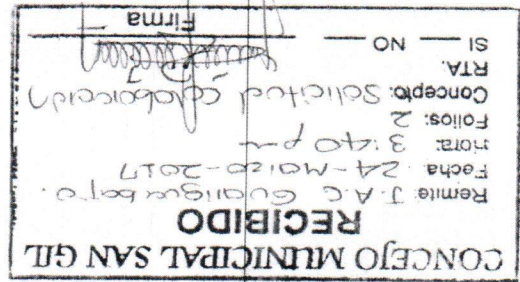 CONCEJO MUNICIPAL SAN GIL
RECIBIDO
Remite J.A.C Guarigua bajo.
Fecha 24-Marzo-2017
Hora: 3:40 pm
Folios: 2
Concepto: Solicitud colaboración
RTA.
SI NO
Firma